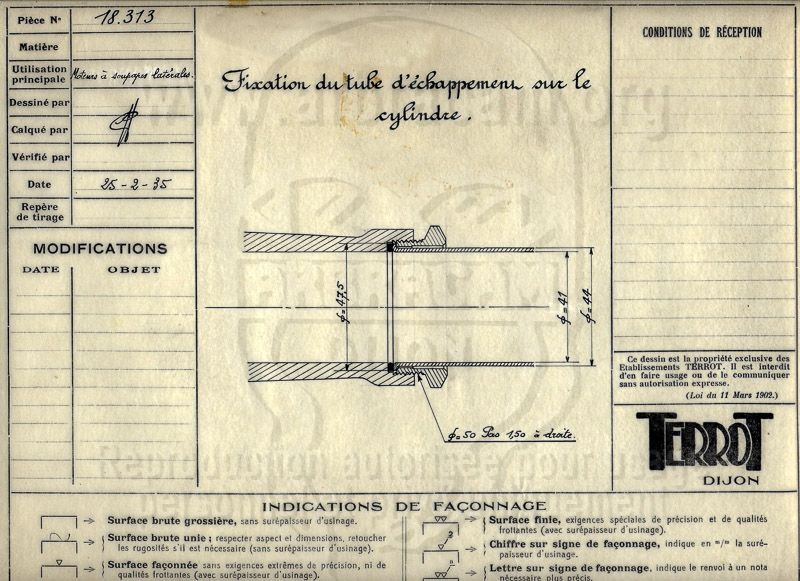 Pièce N° 18.313
Matière
Utilisation principale Moteurs à soupapes latérales.
Dessiné par
Calqué par
Vérifié par
Date 25-2-35
Repère de tirage
MODIFICATIONS
DATE OBJET
Fixation du tube d'échappement sur le
cylindre.
ϕ=47,5
ϕ=41
ϕ=44
ϕ=50 Pas 1,50 à droite.
CONDITIONS DE RÉCEPTION
Ce dessin est la propriété exclusive des
Etablissements TERROT. Il est interdit
d'en faire usage ou de le communiquer
sans autorisation expresse.
(Loi du 11 Mars 1902.)
TERROT
DIJON
INDICATIONS DE FAÇONNAGE
Surface brute grossière, sans surépaisseur d'usinage.
Surface brute unie; respecter aspect et dimensions, retoucher
les rugosités s'il est nécessaire (sans surépaisseur d'usinage).
Surface façonnée sans exigences extrêmes de précision, ni de
qualités frottantes (avec surépaisseur d'usinage).
Surface finie, exigences spéciales de précision et de qualités
frottantes (avec surépaisseur d'usinage).
Chiffre sur signe de façonnage, indique en m/m la suré-
paisseur d'usinage.
Lettre sur signe de façonnage, indique le renvoi à un nota
nécessaire plus précis.
Reproduction autorisée pour